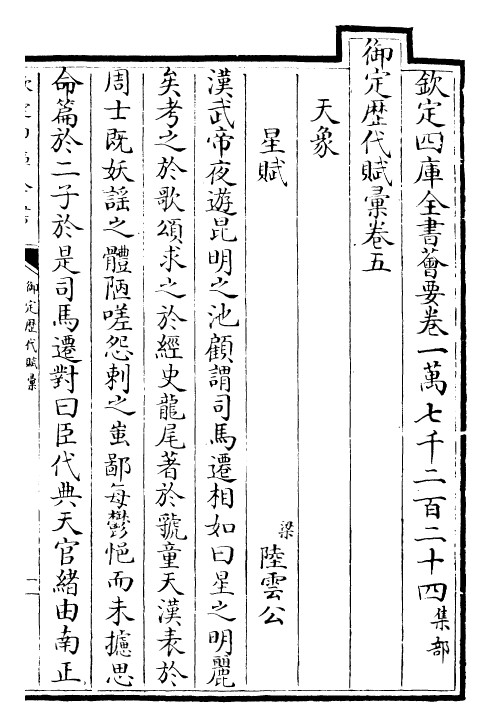 欽定四庫全書薈要卷一萬七千二百二十四集部
御定歷代賦彙卷五
天象
星賦
梁
陸雲公
漢武帝夜遊昆明之池顧謂司馬遷相如曰星之明麗
矣考之於歌頌求之於經史龍尾著於虢童天漢表於
周士既妖謡之體陋嗟怨刺之蚩鄙每鬱悒而未攄思
命篇於二子於是司馬遷對曰臣代典天官緒由南正
御定歷代賦彙